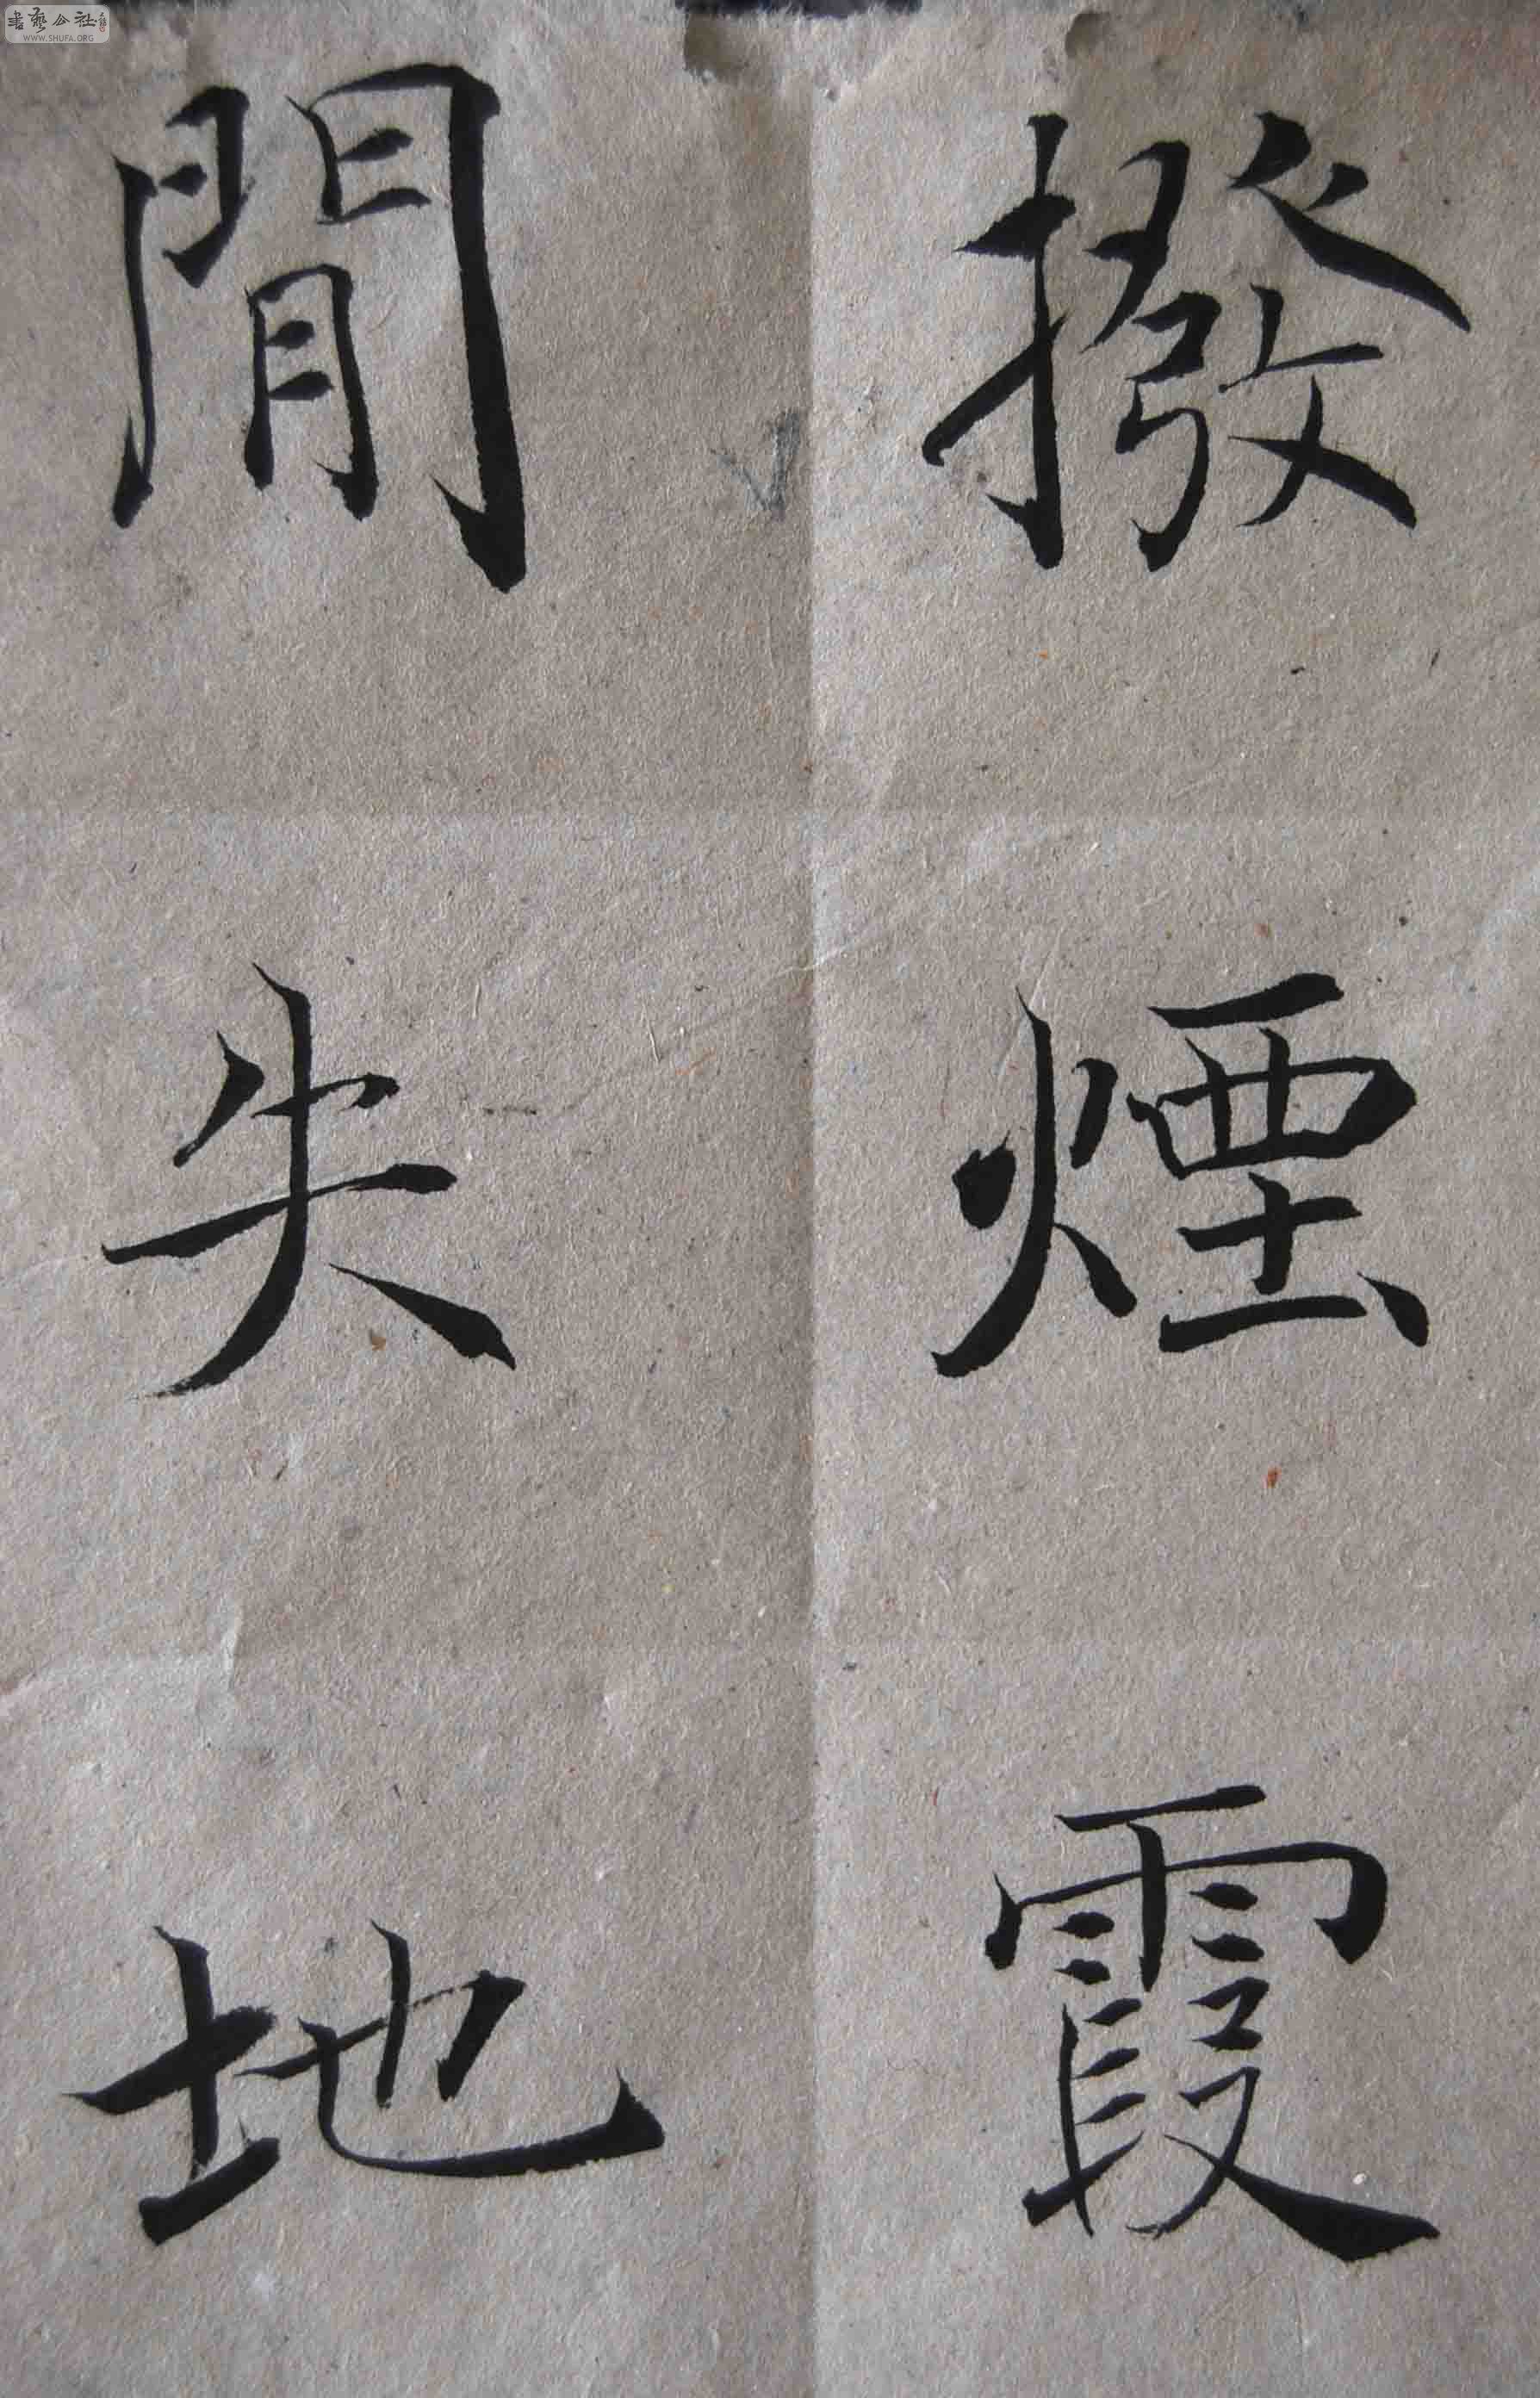 撥煙霞
閒失地
書藝公社
WWW.SHUFA.ORG